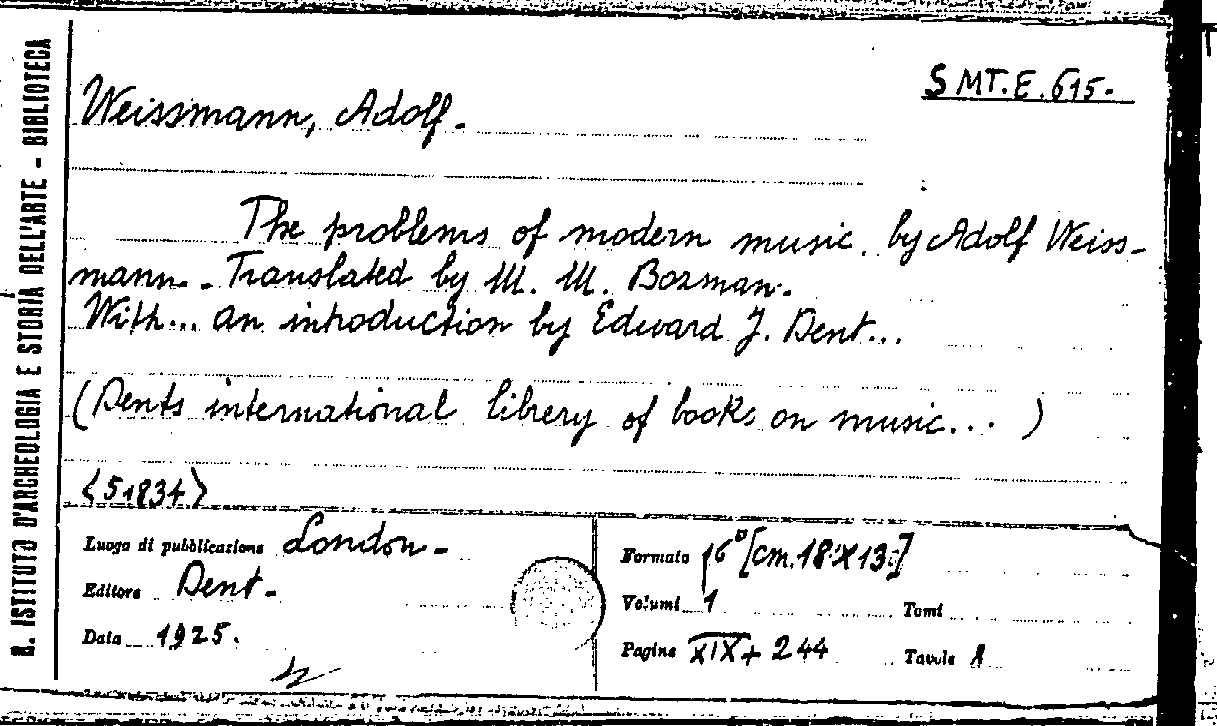 R. ISTITUTO D'ARCHEOLOGIA E STORIA DELL'ARTE - BIBLIOTECA
S MT. E. 615.
Weissmann, Adolf.
The problems of modern music. by Adolf Weiss-
mann. Translated by M. M. Bozman.
With... an introduction by Edward J. Dent...
(Dents international library of books on music... )
<51834>
Luogo di pubblicazione London.
Editore Dent.
Data 1925.
Formato 16° [cm. 18 X 13.]
Volumi 1 Tomi
Pagine XIX + 244 Tavole 1